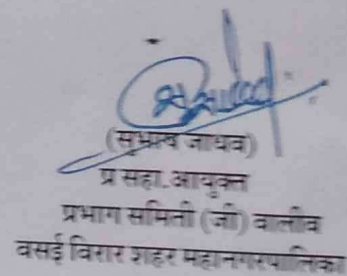 (सुभाष जाधव)
प्र सहा.आयुक्त
प्रभाग समिती (जी) वालीव
वसई विरार शहर महानगरपालिका